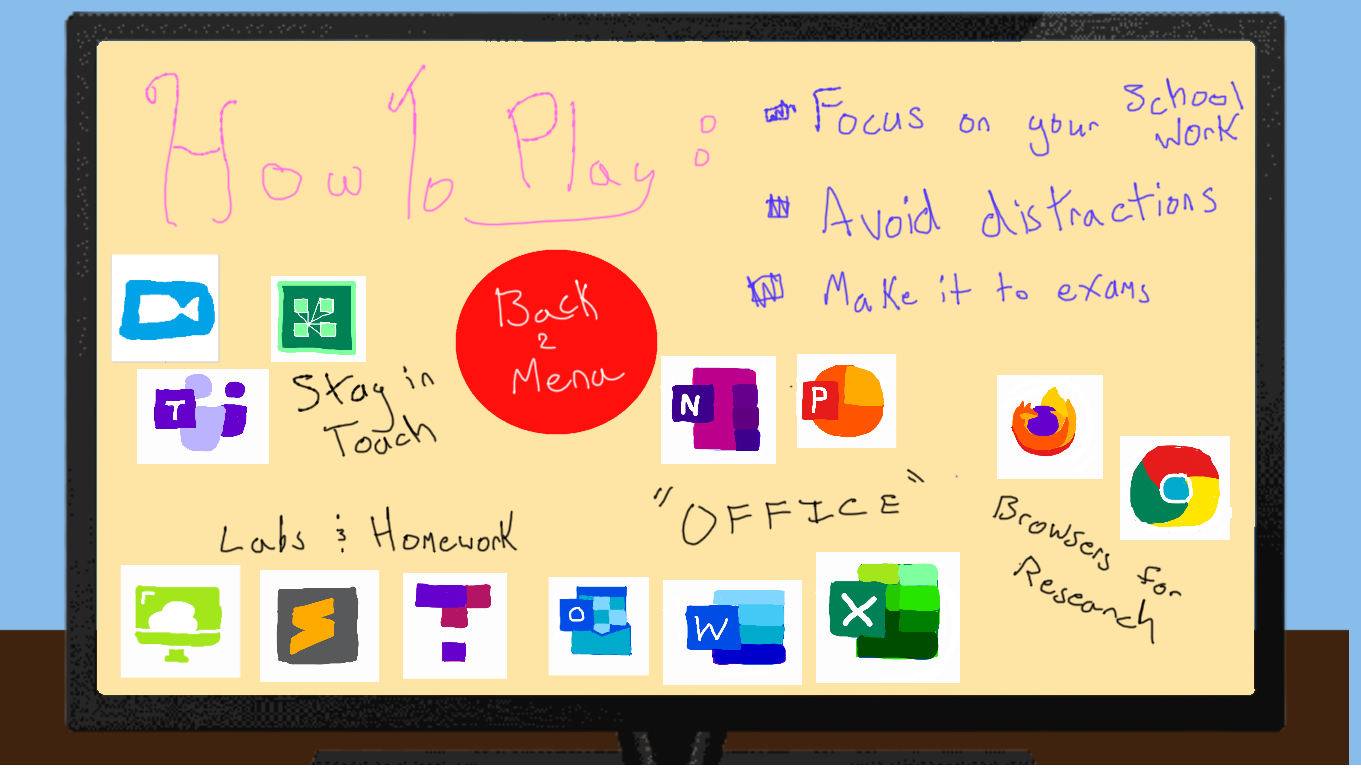 How To Play:
Focus on your School Work
Avoid distractions
Make it to exams
Back
2
Menu
Stay in
Touch
T
N
P
"OFFICE"
Browsers for
Research
Labs & Homework
O
W
X